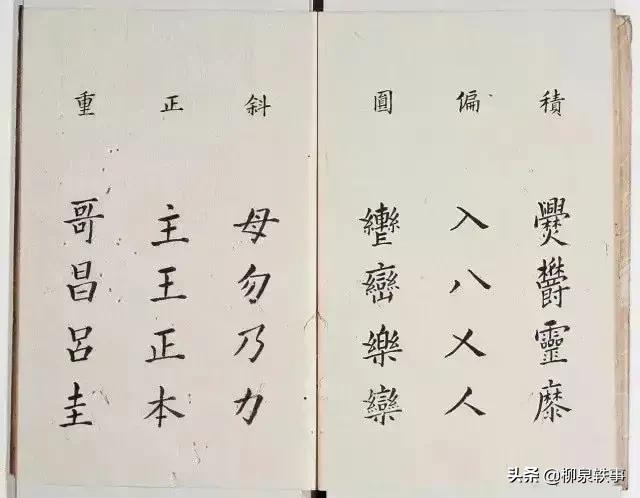 積
爨鬱靈
偏
入八乂人
圓
轡巒樂欒
斜
母勿乃力
正
主王正本
重
哥昌呂圭
头条 @柳泉轶事